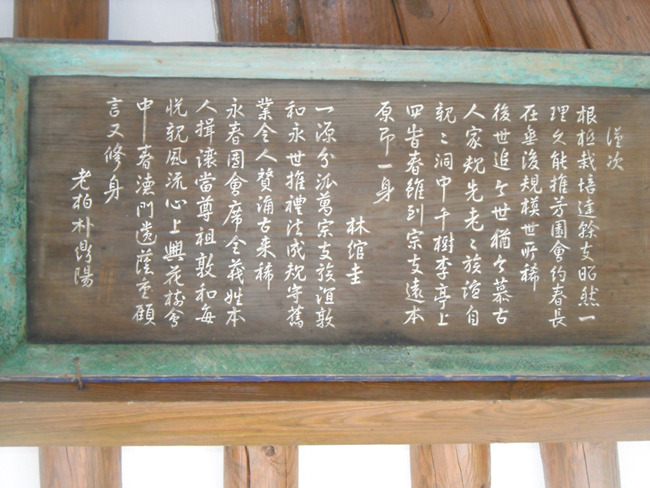 謹次
根植栽培達幹支昭然一
理久能推芳園會約春長
在垂後規模世所稀
後世追今世猶今慕古
人家規先老老族誼自
親〻洞中千樹李亭上
四時春維到宗支遠本
原一身
林綰圭
一源分派萬宗支族誼敦
和永世推禮法成規守舊
業令人贊誦古来稀
永春園會席令義姓本
人揖讓當尊祖敦和每
悅親風流心上興花樹會
中春濃門遺蔭宜顧
言又修身
老柏朴陽